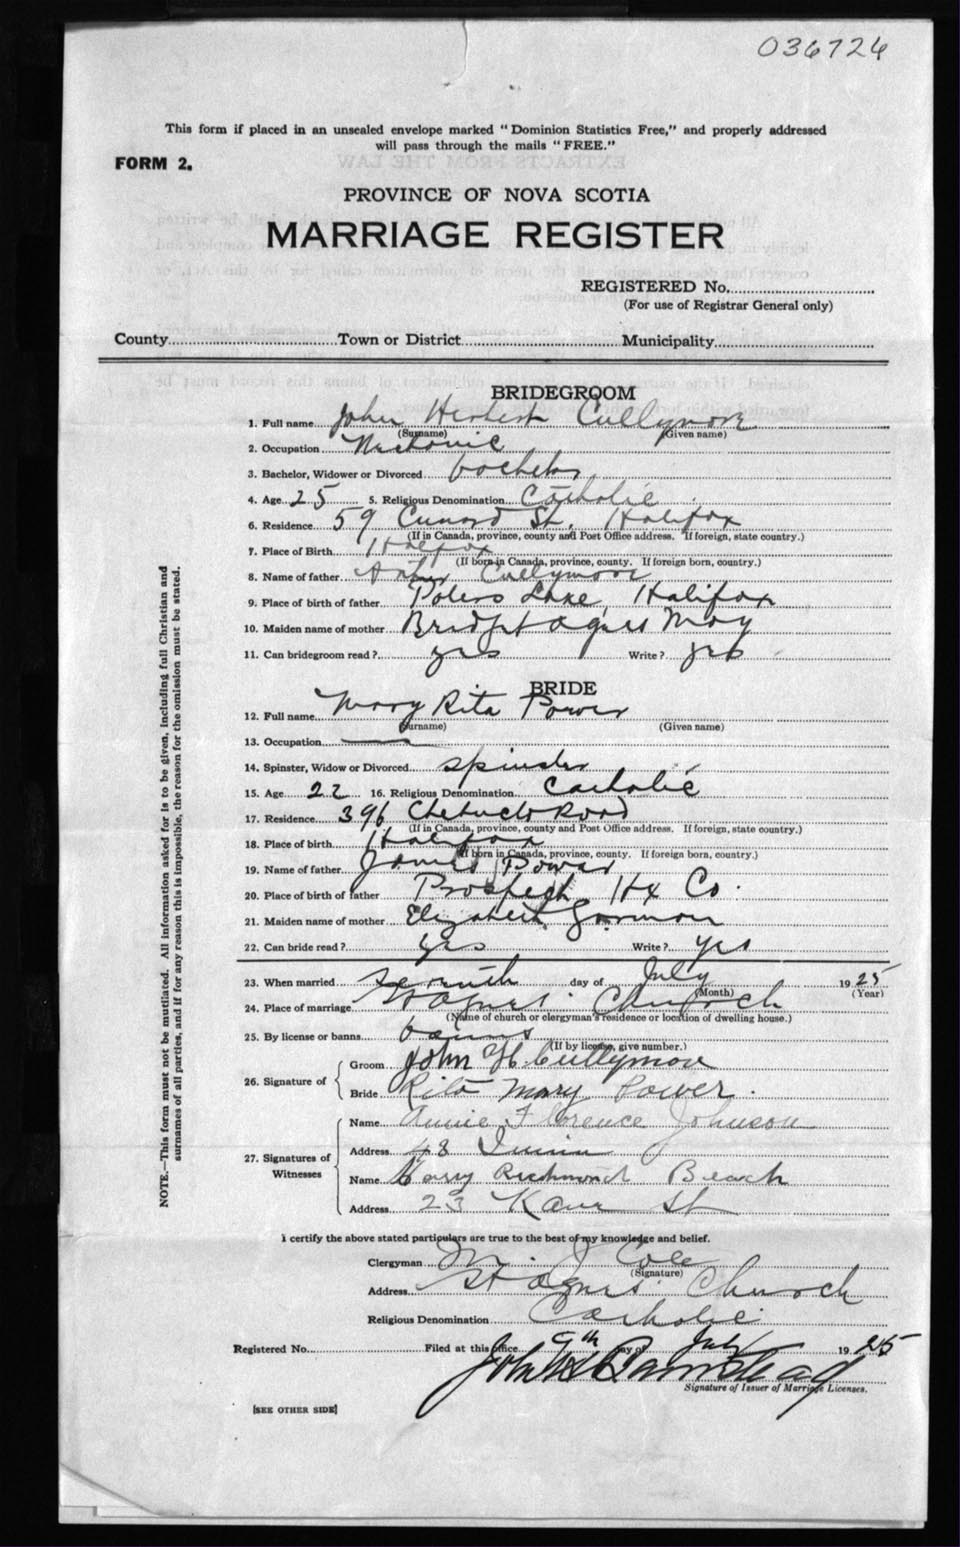 036724
This form if placed in an unsealed envelope marked "Dominion Statistics Free," and properly addressed
will pass through the mails "FREE."
FORM 2.
PROVINCE OF NOVA SCOTIA
MARRIAGE REGISTER
REGISTERED No.
(For use of Registrar General only)
County Town or District Municipality
BRIDEGROOM
1. Full name John Herbert Cullymore
(Surname) (Given name)
2. Occupation Mechanic
3. Bachelor, Widower or Divorced bachelor
4. Age 25 5. Religious Denomination Catholic
6. Residence 59 Cunard St. Halifax
(If in Canada, province, county and Post Office address. If foreign, state country.)
7. Place of Birth Halifax
(If born in Canada, province, county. If foreign born, country.)
8. Name of father Cullymore
9. Place of birth of father Lake, Halifax
10. Maiden name of mother Bridget Agnes May
11. Can bridegroom read? yes Write? yes
BRIDE
12. Full name Mary Rita Power
(Surname) (Given name)
13. Occupation —
14. Spinster, Widow or Divorced spinster
15. Age 22 16. Religious Denomination Catholic
17. Residence 396 Chebucto Road
(If in Canada, province, county and Post Office address. If foreign, state country.)
18. Place of birth Halifax
(If born in Canada, province, county. If foreign born, country.)
19. Name of father James Power
20. Place of birth of father Prospect Hx Co.
21. Maiden name of mother Elizabeth Gorman
22. Can bride read? yes Write? yes
23. When married seventh day of July 1925
(Month) (Year)
24. Place of marriage St Agnes' Church
(Name of church or clergyman's residence or location of dwelling house.)
25. By license or banns banns
(If by license, give number.)
26. Signature of Groom John H Cullymore
Bride Rita Mary Power.
27. Signatures of Witnesses
Name Annie Florence Johnson
Address 48
Name Harry Richmond Beach
Address 23 Kane St
I certify the above stated particulars are true to the best of my knowledge and belief.
Clergyman M. J. Cole
(Signature)
Address St Agnes' Church
Religious Denomination Catholic
Registered No. Filed at this office 9th day of July 1925
Signature of Issuer of Marriage Licenses.
[SEE OTHER SIDE]
NOTE.—This form must not be mutilated. All information asked for is to be given, including full Christian and
surnames of all parties, and if for any reason this is impossible, the reason for the omission must be stated.